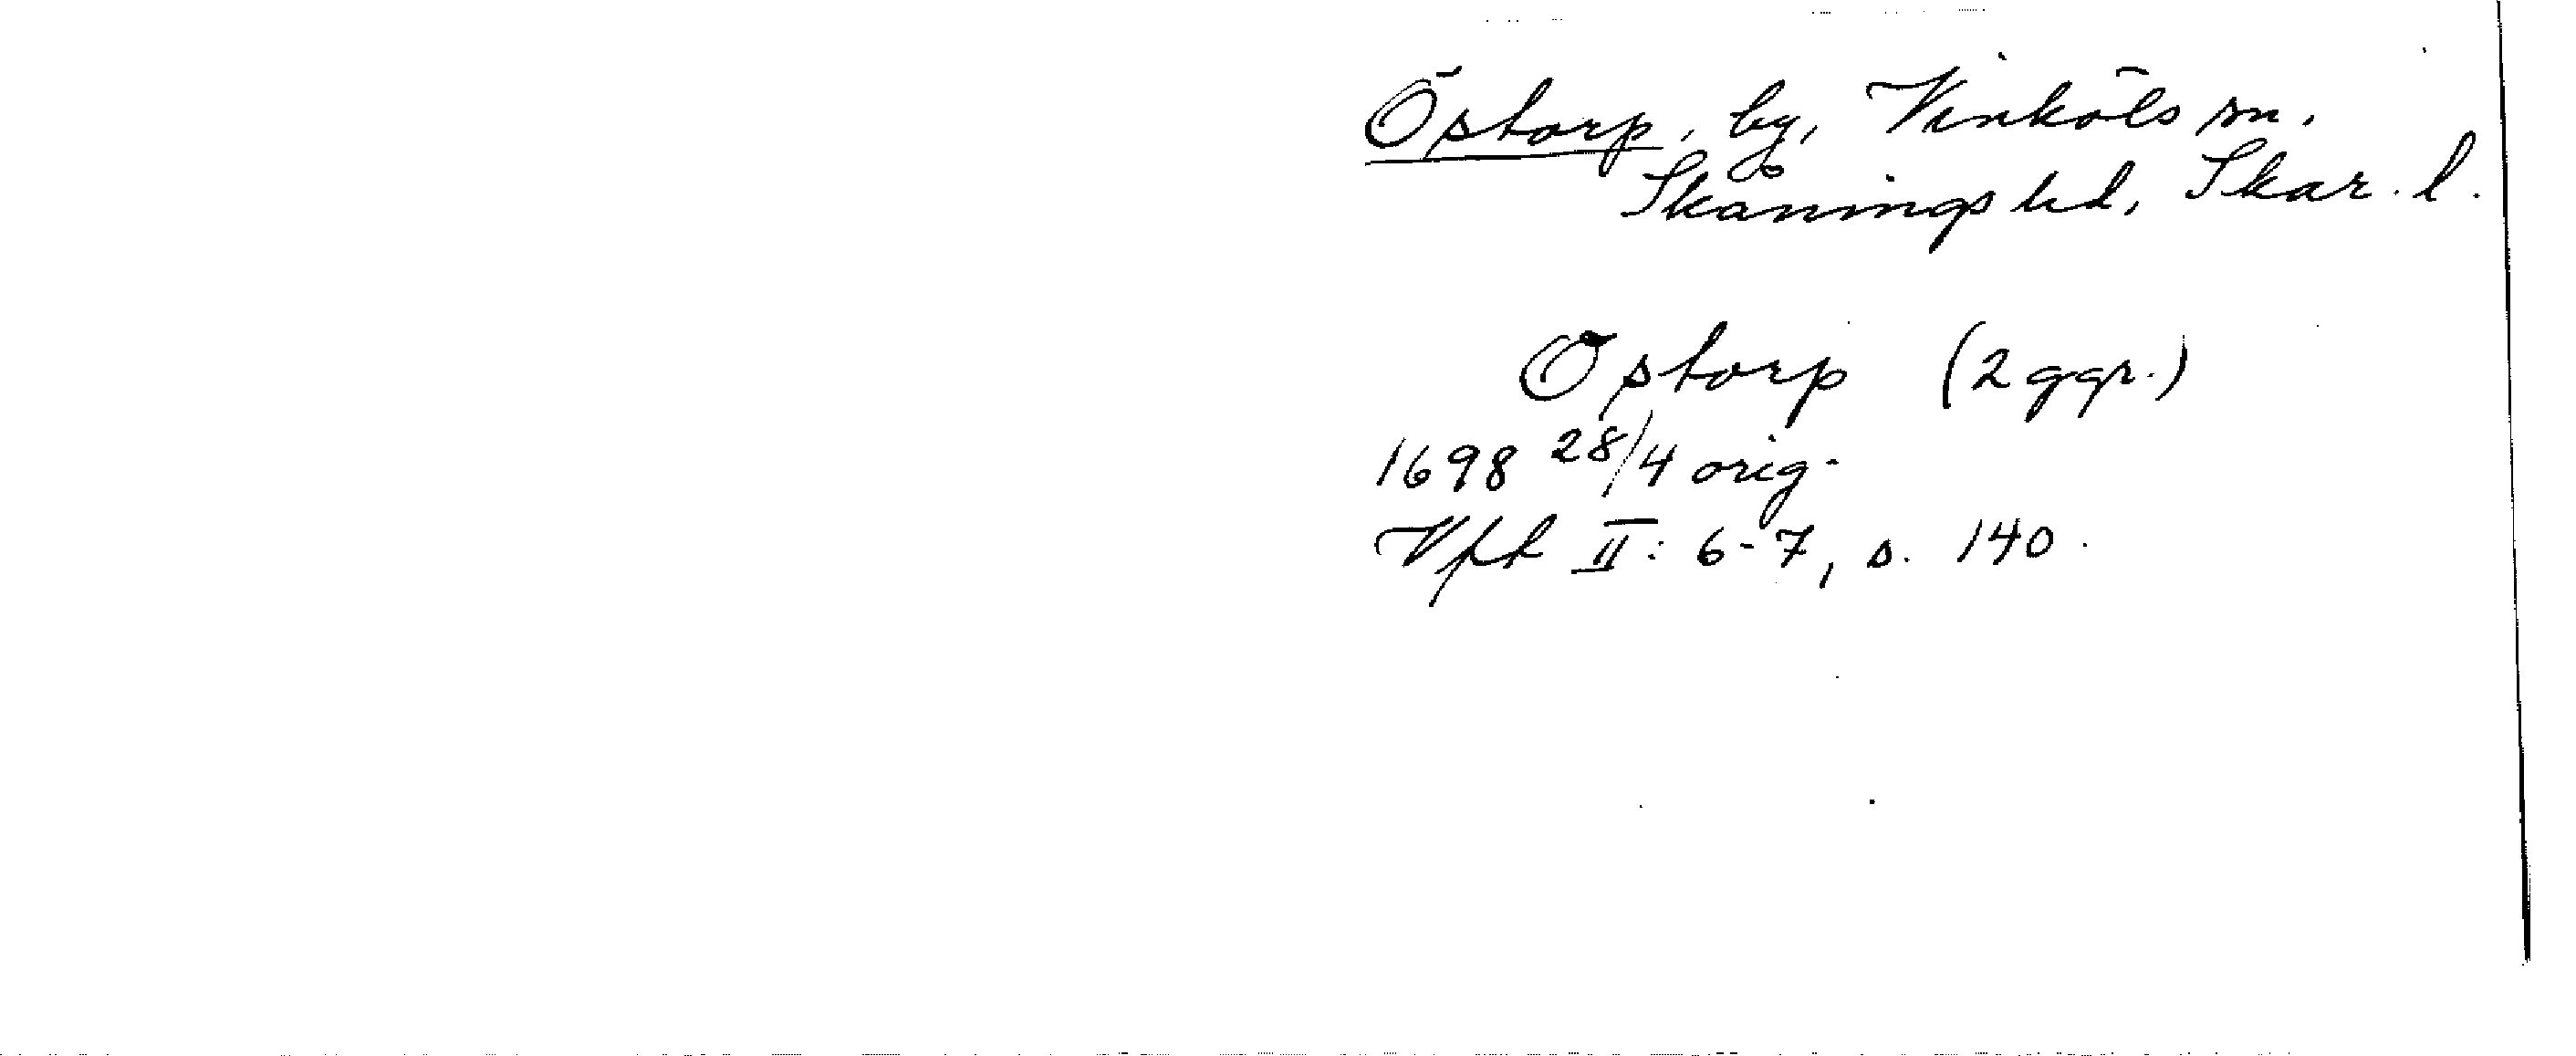 Östorp, by, Vinköls sn.
Skånings hd, Skar. l.
Östorp (2 ggr.)
1698 28/4 orig.
Vft II: 6-7, s. 140.